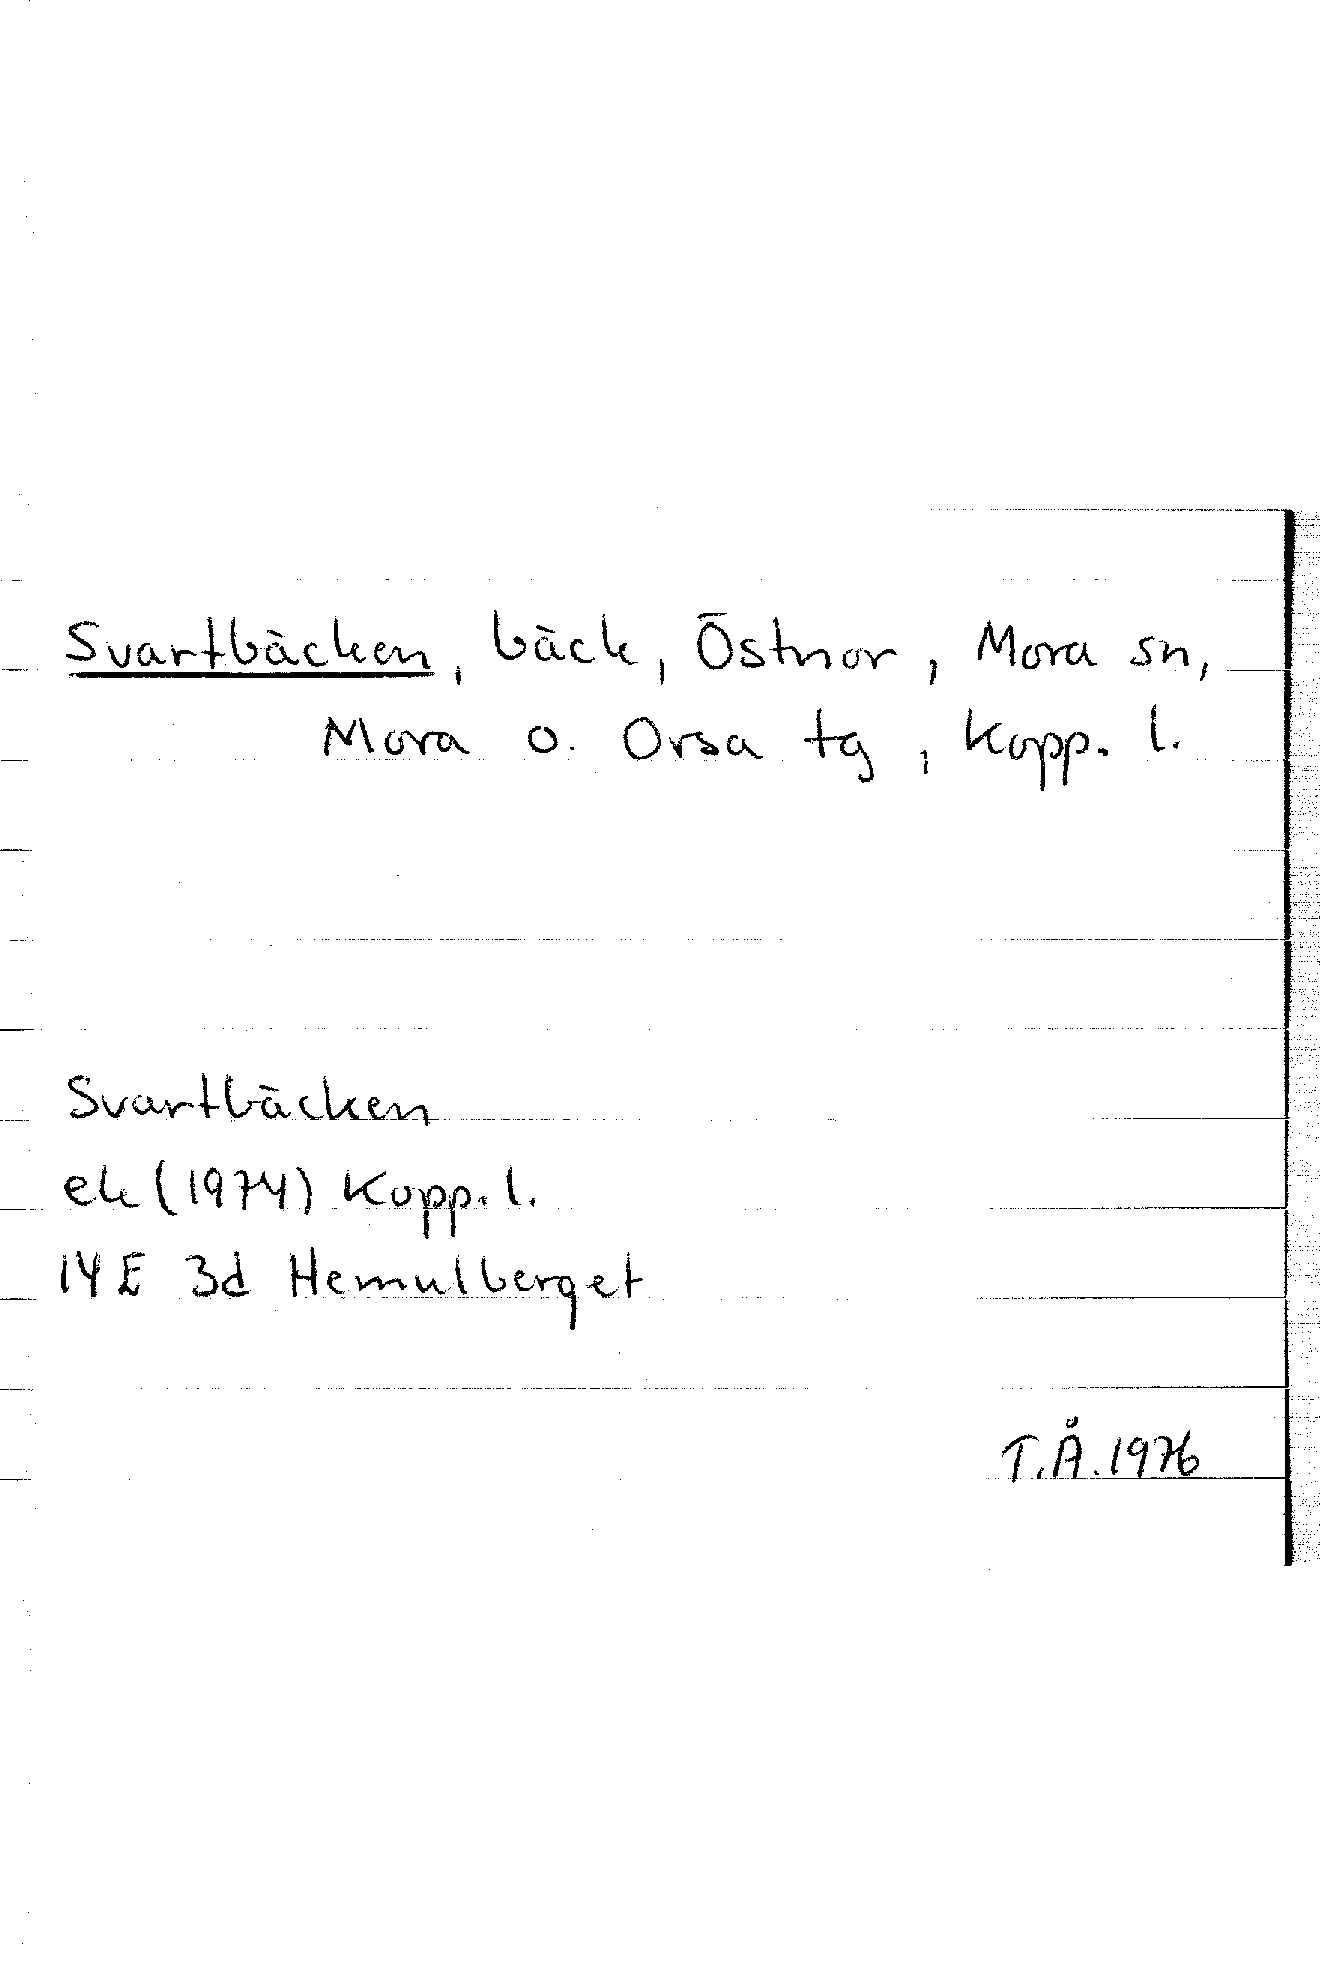 Svartbäcken, bäck, Östnor, Mora sn,
Mora o. Orsa tg, Kopp. l.
Svartbäcken
ek (1974) Kopp. l.
14E 3d Hemulberget
T.Å. 1976